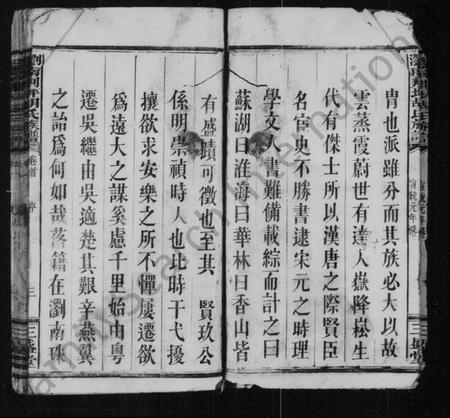 胄也派雖分而其族必大以故
雲蒸霞蔚世有達人嶽降崧生
代有傑士所以漢唐之際賢臣
名宦史不勝書逮宋元之時理
學文人書難備載綜而計之曰
蘇湖曰淮海曰華林曰香山皆
有盛蹟可徵也至其 賢玖公
係明崇禎時人也比時干戈擾
攘欲求安樂之所不憚屢遷欲
為遠大之謀奚慮千里始由粵
遷吳繼由吳適楚其艱辛燕翼
之詒為何如哉落籍在瀏南珠
卷首 序 三
三